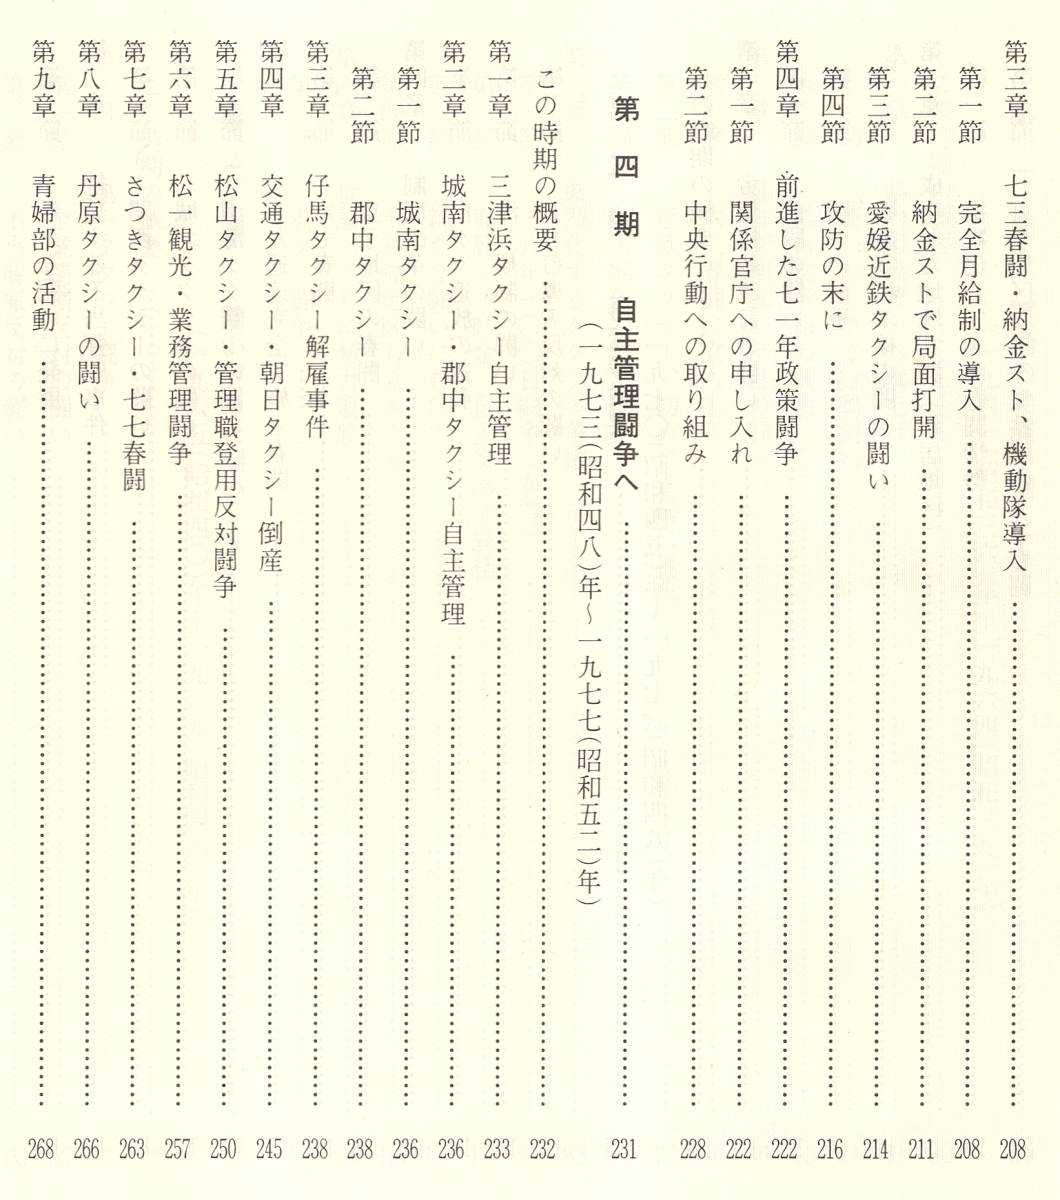 第三章　七三春闘・納金スト、機動隊導入…………208
第一節　完全月給制の導入…………208
第二節　納金ストで局面打開…………211
第三節　愛媛近鉄タクシーの闘い…………214
第四節　攻防の末に…………216
第四章　前進した七一年政策闘争…………222
第一節　関係官庁への申し入れ…………222
第二節　中央行動への取り組み…………228
第四期　自主管理闘争へ…………231
（一九七三（昭和四八）年～一九七七（昭和五二）年）
この時期の概要…………232
第一章　三津浜タクシー自主管理…………233
第二章　城南タクシー・郡中タクシー自主管理…………236
第一節　城南タクシー…………236
第二節　郡中タクシー…………238
第三章　仔馬タクシー解雇事件…………238
第四章　交通タクシー・朝日タクシー倒産…………245
第五章　松山タクシー・管理職登用反対闘争…………250
第六章　松一観光・業務管理闘争…………257
第七章　さつきタクシー七七春闘…………263
第八章　丹原タクシーの闘い…………266
第九章　青婦部の活動…………268